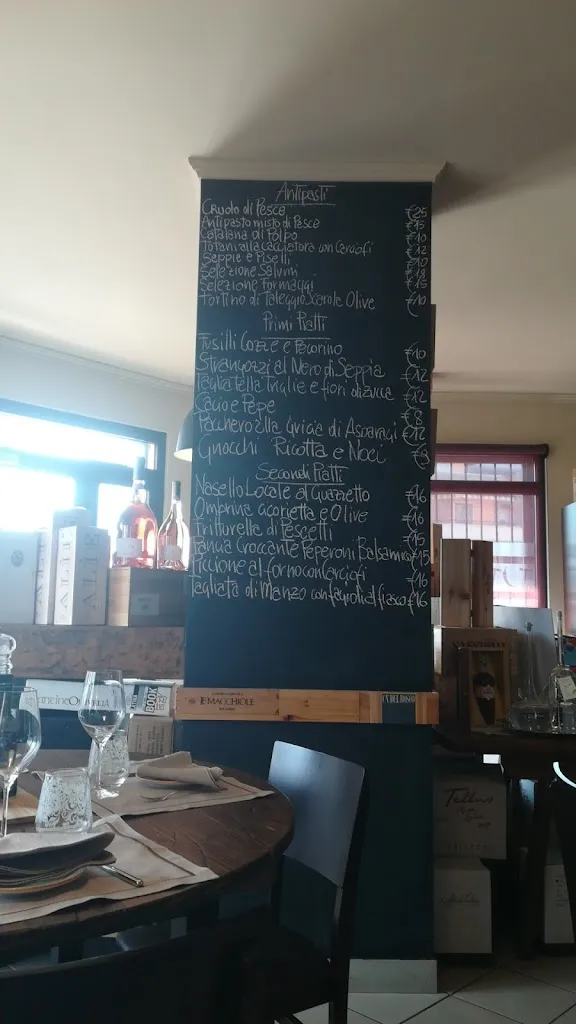 Antipasti
Crudo di Pesce €25
Antipasto misto di Pesce €15
Catalana di Polpo €10
Totani alla Cacciatora con Carciofi €12
Seppie e Piselli €10
Selezione Salumi €18
Selezione Formaggi €15
Tortino di Taleggio Scarole Olive €10
Primi Piatti
Fusilli Cozze e Pecorino €10
Strangozzi al Nero di Seppia €12
Tagliatella Triglie e fiori di zucca €12
Cacio e Pepe €8
Pacchero alla Gricia di Asparagi €12
Gnocchi Ricotta e Noci €8
Secondi Piatti
Nasello Locale al Guazzetto €16
Ombrina acorietta e Olive €16
Fritturella di Pescetti €15
Pancia Croccante Peperoni Balsamico €15
Piccione al forno con carciofi €16
Tagliata di Manzo con fagioli al fiasco €16
LE MACCHIOLE
CA' DEL BOSCO
ALIE
ALIE
BOOK
Tellus